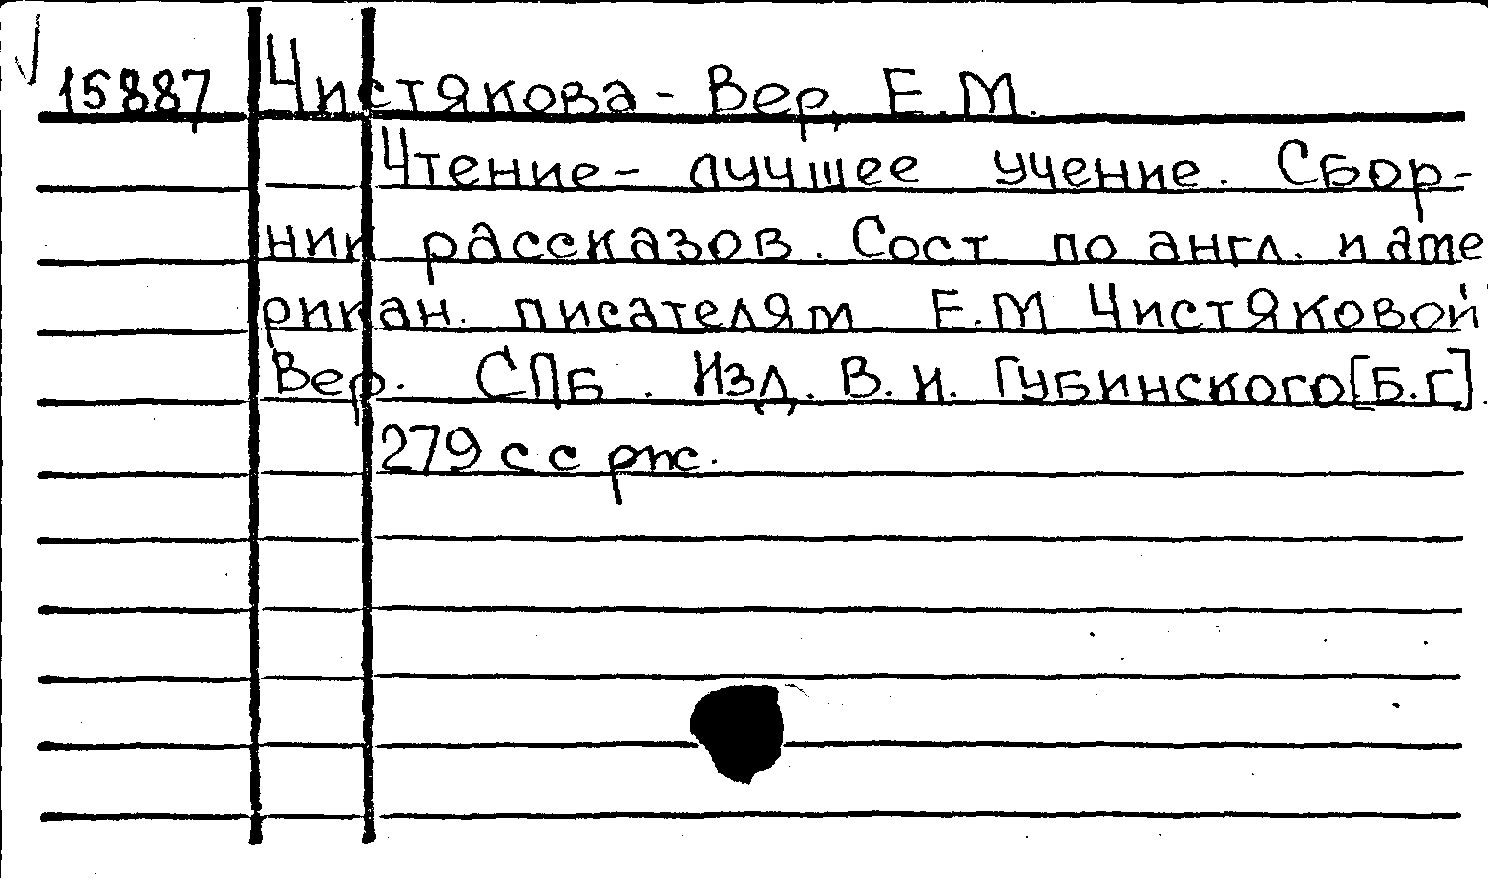 15887 Чистякова - Вер, Е.М.
Чтение - лучшее учение. Сбор-
ник рассказов. Сост по англ. и аме
рикан. писателям Е.М Чистяковой
Вер. СПб. Изд. В.И. Губинского [Б.Г].
279 с с рис.